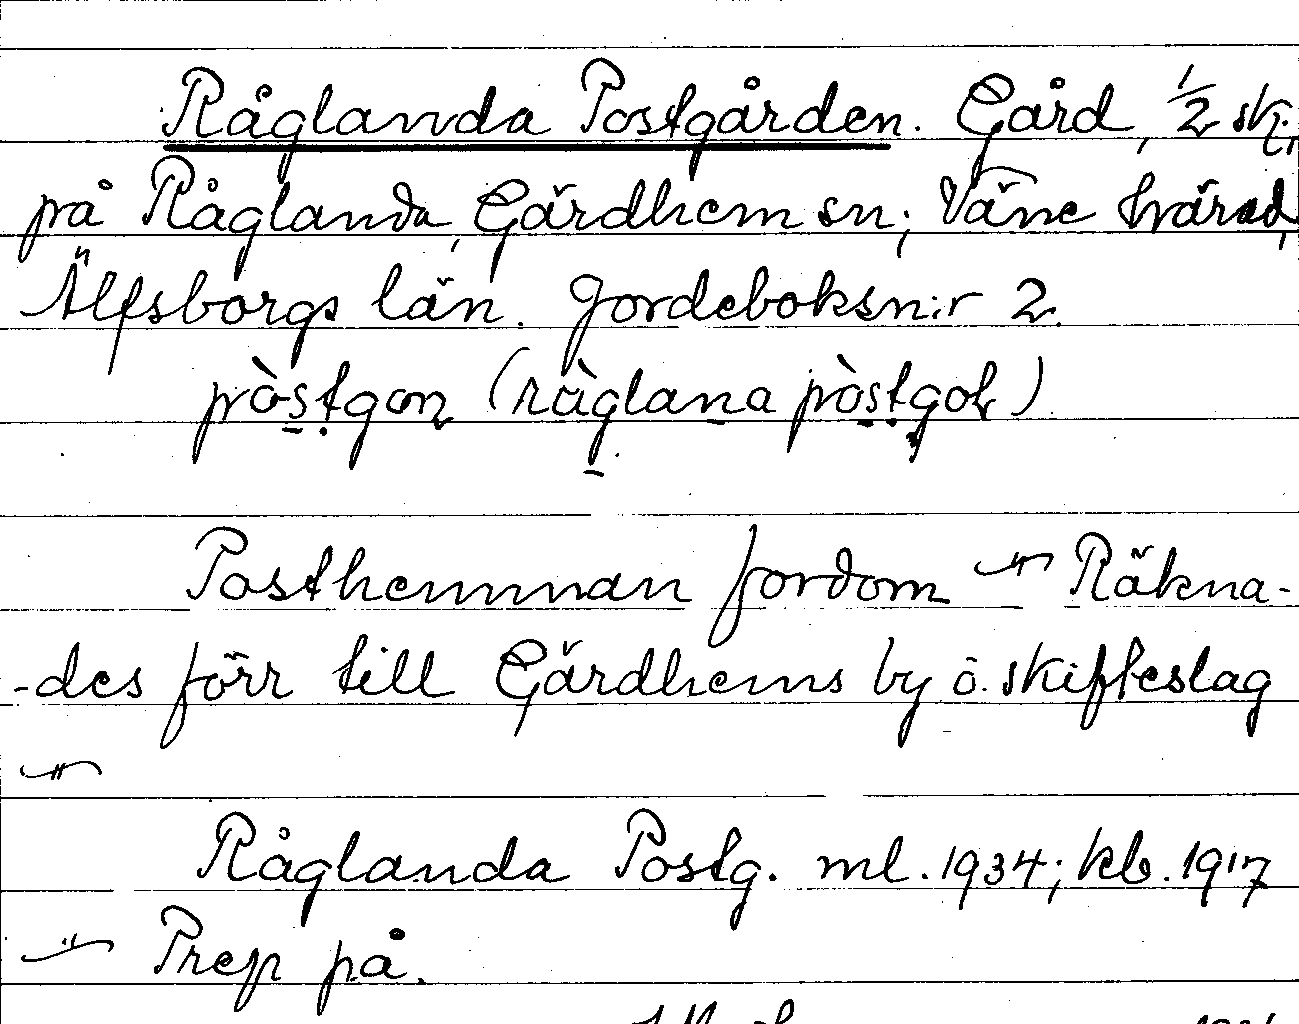 Råglanda Postgården. Gård, 1/2 sk.,
på Råglanda, Gärdhem sn; Väne härad,
Älfsborgs län. Jordeboksn:r 2.
pòstgoɳ (ràglana pòstgoɽ)
Posthemman fordom –"– Räkna-
-des förr till Gärdhems by ö. skifteslag
–"–
Råglanda Postg. ml. 1934; kb. 1917
–"– Prep på.